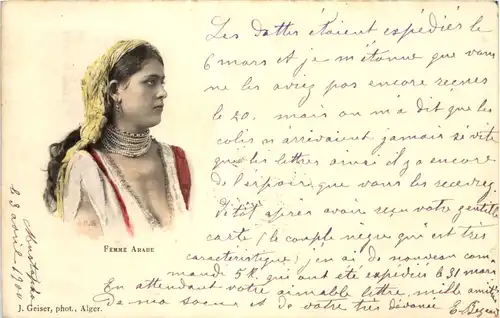 Les dattes étaient expédiées le
6 mars et je m'étonne que vous
ne les aviez pas encore reçues
le 20. mais on m'a dit que les
colis n'arrivaient jamais si vite
que les lettres ainsi il y a encore
de l'espoir que vous les recevrez
bientôt après avoir reçu votre gentille
carte (le couple nègre qui est très
caractéristique) j'en ai de nouveau com-
mandé 5 K. qui ont été expédiés le 31 mars
En attendant votre aimable lettre, mille amitiés
de ma soeur et de votre très dévouée E.
FEMME ARABE
J. Geiser, phot., Alger.
Mustapha
le 3 avril 1900